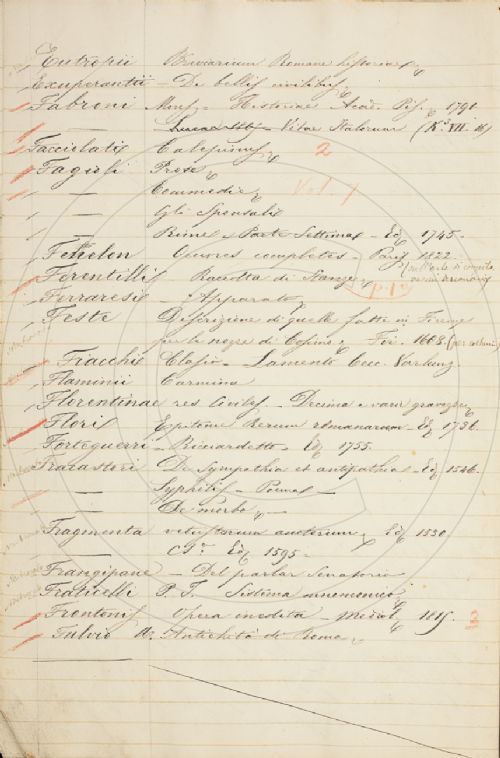 Eutropii Breviarium Romane historiae
Exuperantii - De bellis civilibus
Fabroni - Historiae Acad. Pis. 1791
— Vitae Italorum
Facciolatis Calepinus 2
Fagioli Prose
— Commedie Vol. 7
— Gli Sponsali
— Rime - Parte Settima - Ed. 1745.
Fenelon Oeuvres completes - Paris 1822
Ferentilli Raccolta di Stanze
Ferraresis - Apparato
Feste Descrizione di quelle fatte in Firenze
per le nozze di Cosimo Fir. 1608
Fiacchi Clasio - Lamento Cecc. Varlung.
Flaminii Carmina
Florentinae res Civiles - Decima e varie gravezze
Flori Epitome Rerum romanarum - Ed. 1736.
Forteguerri - Ricciardetto - Ed. 1755.
Fracastori De Sympathia et antipathia - Ed. 1546.
— Syphilis - Poema
— De morbo
Fragmenta vetustorum auctorum Ed. 1530
— Ed. 1595 -
Frangipane - Del parlar Senatorio
Fraticelli P. J. Sistema mnemonico
Frontonis Opera inedita - Mediol. 1815. 3
Fulvio A. Antichità di Roma